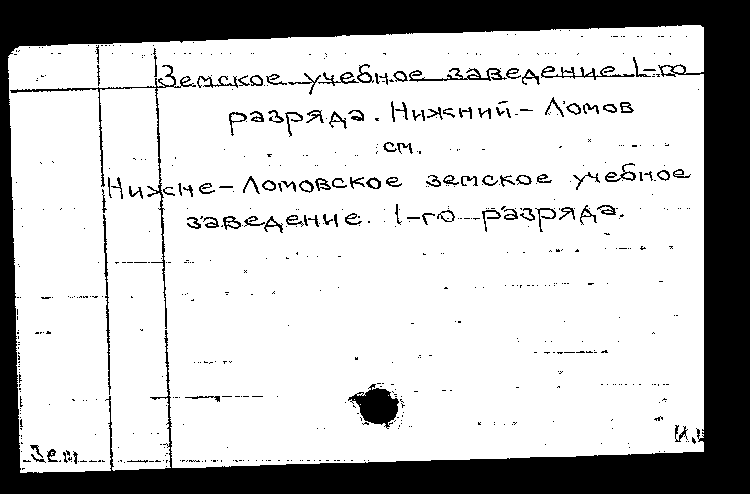 Земское учебное заведение 1-го
разряда. Нижний - Ломов
см.
Нижне-Ломовское земское учебное
заведение. 1-го разряда.
Зем